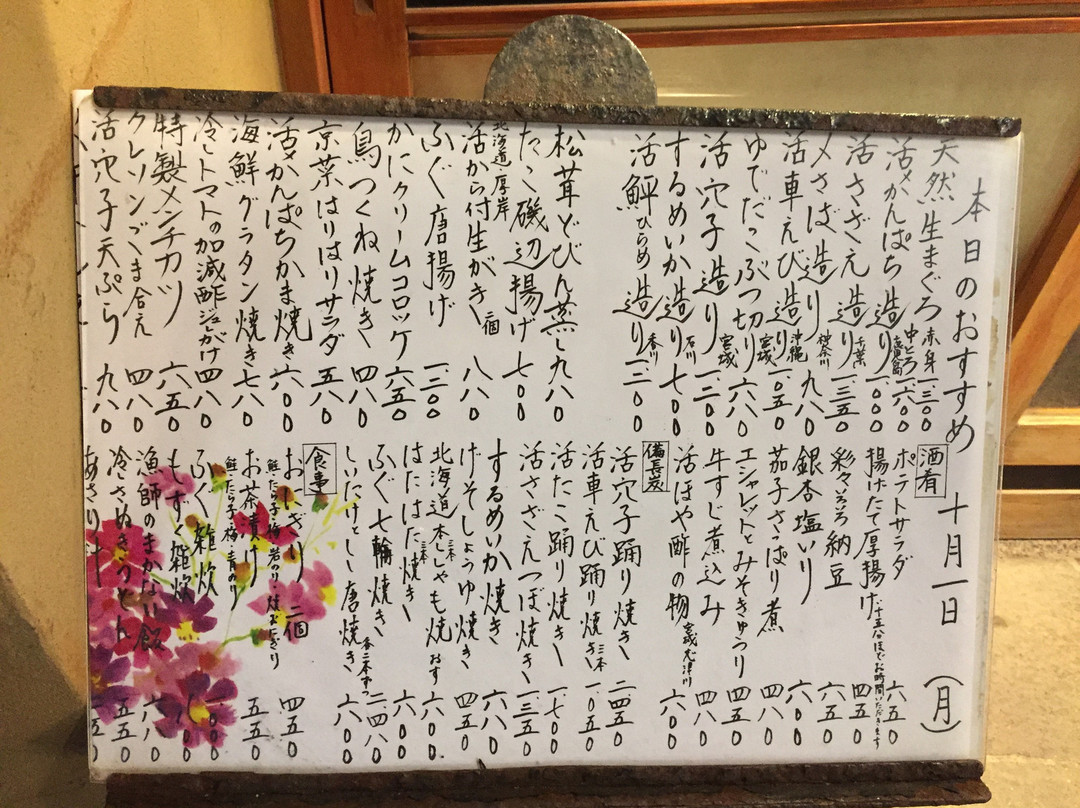 本日のおすすめ 十月一日(月)
天然生まぐろ 赤身 一三〇〇
中とろ 一六〇〇
活〆かんぱち造り 一〇〇〇
活さざえ造り 千葉 一三五〇
〆さば造り 神奈川 九八〇
活車えび造り 沖縄 一〇五〇
ゆでだこぶつ切り 宮城 六八〇
活穴子造り 宮城 一二〇〇
するめいか造り 石川 七〇〇
活鮃ひらめ造り 香川 一二〇〇
松茸どびん蒸し 九八〇
たこ磯辺揚げ 七〇〇
北海道・厚岸
活から付生がき 一個 八八〇
ふぐ唐揚げ 一二〇〇
かにクリームコロッケ 六五〇
鳥つくね焼き 四八〇
京菜はりはりサラダ 五八〇
活〆かんぱちかま焼き 六〇〇
海鮮グラタン焼き 七八〇
冷しトマトの加減酢ジュレがけ 四八〇
特製メンチカツ 六五〇
クレソンごま合え 四八〇
活穴子天ぷら 九八〇
酒肴
ポテトサラダ 六五〇
揚げたて厚揚げ 十五分ほどお時間いただきます 四五〇
彩々いろいろ納豆 六五〇
銀杏塩いり 六〇〇
茄子さっぱり煮 四八〇
エシャレットとみそきゅうり 四五〇
牛すじ煮込み 四八〇
活ほや酢の物 宮城 六〇〇
備長炭
活穴子踊り焼き 二四五〇
活車えび踊り焼き 二本 一〇五〇
活たこ踊り焼き 一七〇〇
活さざえつぼ焼き 一三五〇
するめいか焼き 六八〇
げそしょうゆ焼き 四五〇
北海道本ししゃも焼 三本 おす 六〇〇
はたはた焼き 二本 六〇〇
ふぐ七輪焼き 二四八〇
しいたけとしし唐焼き 各二本ずつ 六〇〇
食事
おにぎり 二個 四五〇
鮭・たら子・梅・岩のり・焼おにぎり
お茶漬け 五五〇
鮭・たら子・梅・青のり
ふぐ雑炊 一〇〇〇
もずく雑炊 八〇〇
漁師のまかない飯 一八〇
冷しさぬきうどん 五五〇
あさり汁 五〇